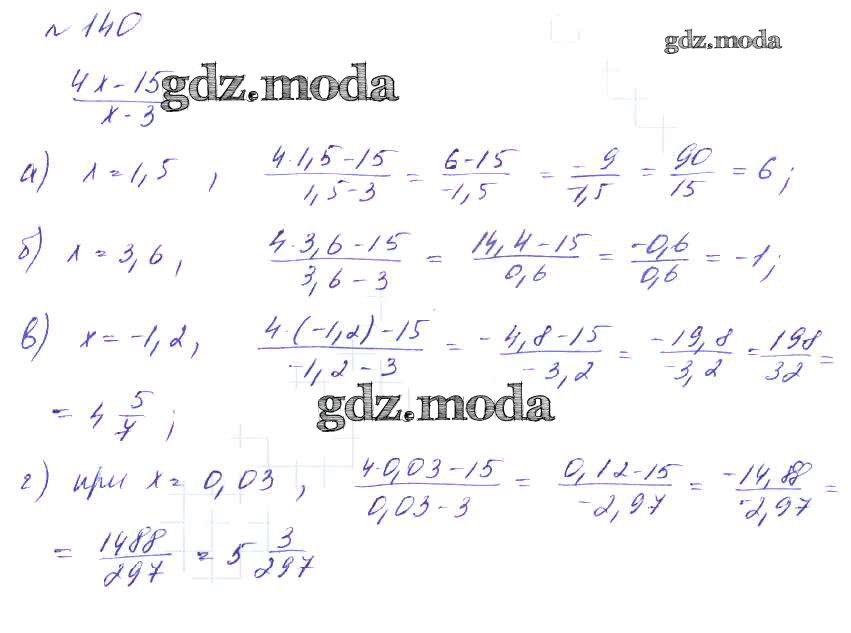 № 140
gdz.moda
(4x-15)/(x-3) gdz.moda
а) x=1,5, (4·1,5-15)/(1,5-3) = (6-15)/(-1,5) = (-9)/(-1,5) = 90/15 = 6;
б) x=3,6, (4·3,6-15)/(3,6-3) = (14,4-15)/(0,6) = (-0,6)/(0,6) = -1;
в) x=-1,2, (4·(-1,2)-15)/(-1,2-3) = (-4,8-15)/(-3,2) = (-19,8)/(-3,2) = 198/32 =
= 4 5/7;
gdz.moda
г) при x=0,03, (4·0,03-15)/(0,03-3) = (0,12-15)/(-2,97) = (-14,88)/(-2,97) =
= 1488/297 = 5 3/297